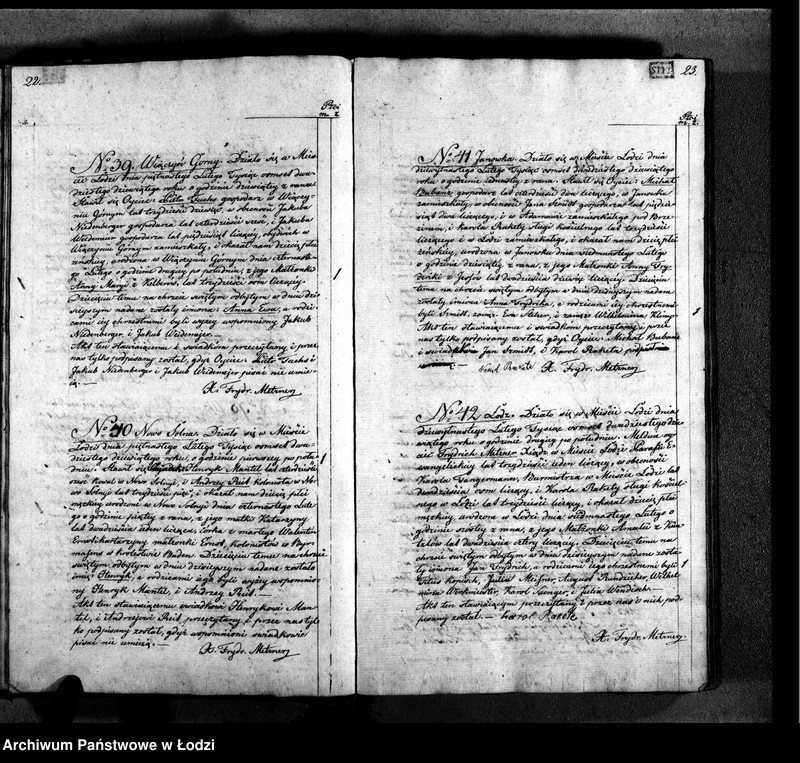 22.
Płci
m. ż.
No 39. Wiączyń Gorny. Działo się w Mieś-
cie Łodzi dnia piętnastego Lutego Tysiąc osmset dwa-
dziestego dziewiątego roku o godzinie dziewiątej z rana
Stawił się Oyciec Fuchs gospodarz w Wiączy-
niu Górnym lat trzydzieści dziewięć, w obecności Jakuba
Niedenberger gospodarza lat czterdzieści sześć, i Jakuba
Wedemeier gospodarza lat pięćdziesiąt liczących, obydwóch w
Wiączyniu Górnym zamieszkały, i okazał nam dziecię płci
żeńskiej, urodzone w Wiączyniu Gornym dnia czternaste-
go Lutego o godzinie drugiej po południu, z jego Małżonki
Anny Maryi z Kilbrow, lat trzydzieści osm liczącej.
Dziecięciu temu na chrzcie świętym odbytym w dniu dzi-
sieyszym nadane zostały imiona: Anna Ewa, a rodzi-
cami iey chrzestnemi byli wyżej wspomniony Jakub
Niedenberger, i Jakub Wedemejer.
Akt ten stawaiącemu i świadkom przeczytany, i przez
nas tylko podpisany został, gdyż Oyciec Fuchs i
Jakub Niedenberger i Jakub Wedemejer pisać nie umie-
ią.—
X. Frydr. Metzner
No 40 Nowo Solna. Działo się w Mieście
Łodzi dnia piętnastego Lutego Tysiąc osmset dwa-
dziestego dziewiątego roku, o godzinie pierwszej po połu-
dniu. Stawił się Henryk Mantel lat czterdzieści
sześć Kowal w Nowo Solnyi, i Andrzej Reich kolonista w No-
wo Solnyi lat trzydzieści pięć, i okazał nam dziecię płci
męzkiej urodzone w Nowo Solnyi dnia czternastego Lute-
go o godzinie piątej z rana, z jego matki Katarzyny
lat dwadzieścia ieden liczącej córka z marłego Walentin
Ernst i Katarzyny małżonki Ernst, kolonistów w
w Królestwie Baden. Dziecięciu temu na chrzcie
świętym odbytym w dniu dzisieyszym nadane zostało
imie: Henryk, a rodzicami iego byli wyżey wspomnio-
ny Henryk Mantel, i Andrzej Reich.—
Akt ten stawaiącemu świadkowi Henrykowi Man-
tel, i Andrzejowi Reich przeczytany i przez nas tyl-
ko podpisany został, gdyż wspomnieni świadkowie
pisać nie umieią.—
X. Frydr. Metzner
23.
Płci
m. ż.
No 41 Janowka. Działo się w Mieście Łodzi dnia
dziewiętnastego Lutego Tysiąc osmset dwudziestego dziewiątego
roku o godzinie iednastej z rana. Stawił się Oyciec: Michał
Bubanc gospodarz lat czterdzieści dwa liczący, w Janowka
zamieszkały, w obecności Jana Szmidt gospodarza lat pięćdzie-
siąt dwa liczącego, i w Adamowie zamieszkałego pod Brze-
zinem, i Karola Rakety sługi kościelnego lat trzydzieści
liczącego i w Łodzi zamieszkałego, i okazał nam dziecię płci
żeńskiej, urodzone w Janowka dnia siedmnastego Lutego
o godzinie dziewiątej z rana, z jego Małżonki Anny Fry-
deriki z Jesców lat dwadzieścia dziewięć liczącej. Dziecięciu
temu na chrzcie świętym odbytym w dniu dzisieyszym nadane
zostały imiona: Anna Frydrika, a rodzicami iey chrzestnemi
byli Szmidt, zamęż. Ewa Steker, i zamęż. Wilhelmina Kling.
Akt ten stawaiącemu i świadkom przeczytany i przez
nas tylko podpisany został, gdyż Oyciec: Michał Bubanc
i świadkowie Jan Szmidt, i Karol Raketa
Karol Rakete X. Frydr. Metzner
No 42 Łódź. Działo się w Mieście Łodzi dnia
dziewiętnastego Lutego Tysiąc osmset dwudziestego dzie-
wiątego roku o godzinie drugiej po południu. Meldun oy-
ciec Frydrich Metzner Xiądz w Mieście Łodzi Parafii E-
wangelickiej lat trzydzieści ieden liczący, w obecności
Karola Tangermann, Burmistrza w Mieście Łodzi lat
dwadzieścia osm liczący, i Karola Rakety sługi kościel-
nego w Łodzi lat trzydzieści liczący, i okazał dziecię płci
męzkiej, urodzone w Łodzi dnia siedmnastego Lutego o
godzinie szóstej z rana, z jego Małżonki Amalii z
lat dwadzieścia cztery liczącej. Dziecięciu temu na
chrzcie świętym odbytym w dniu dzisieyszym nadane zosta-
ły imiona: Jan Frydrich, a rodzicami iego chrzestnemi byli:
Titus Kopisch, Julia Meisner, August Rundzieher, Wilhel-
mina Werkmeister, Karol Saenger, i Julia Wendisch.
Akt ten stawaiącym przeczytany i przez nas i nich pod-
pisany został.— Karol Rakete
X. Frydr. Metzner.
Archiwum Państwowe w Łodzi